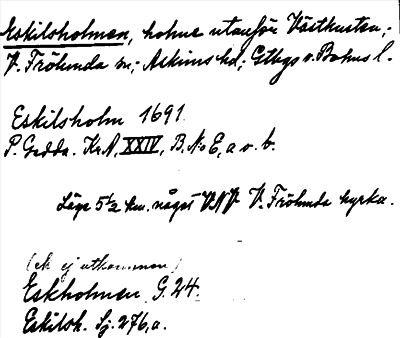 Eskilsholmen, holme utanför Västkusten;
V. Frölunda sn; Askims hd; Gtbgs o. Bohus l.
Eskilsholm 1691.
P. Gedda. Kr.A, XXIV, B, No E, a o. b.
Läge 5½ km. något V.N.V. V. Frölunda kyrka.
(ek. ej utkommen)
Eskholmen G. 24.
Eskilsh. Sj. 276, a.